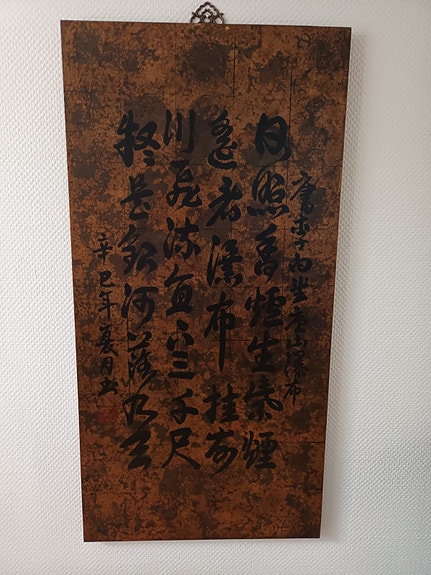 唐李白望庐山瀑布
日照香爐生紫煙
遙看瀑布挂前
川飛流直下三千尺
疑是銀河落九天
辛巳年夏月书